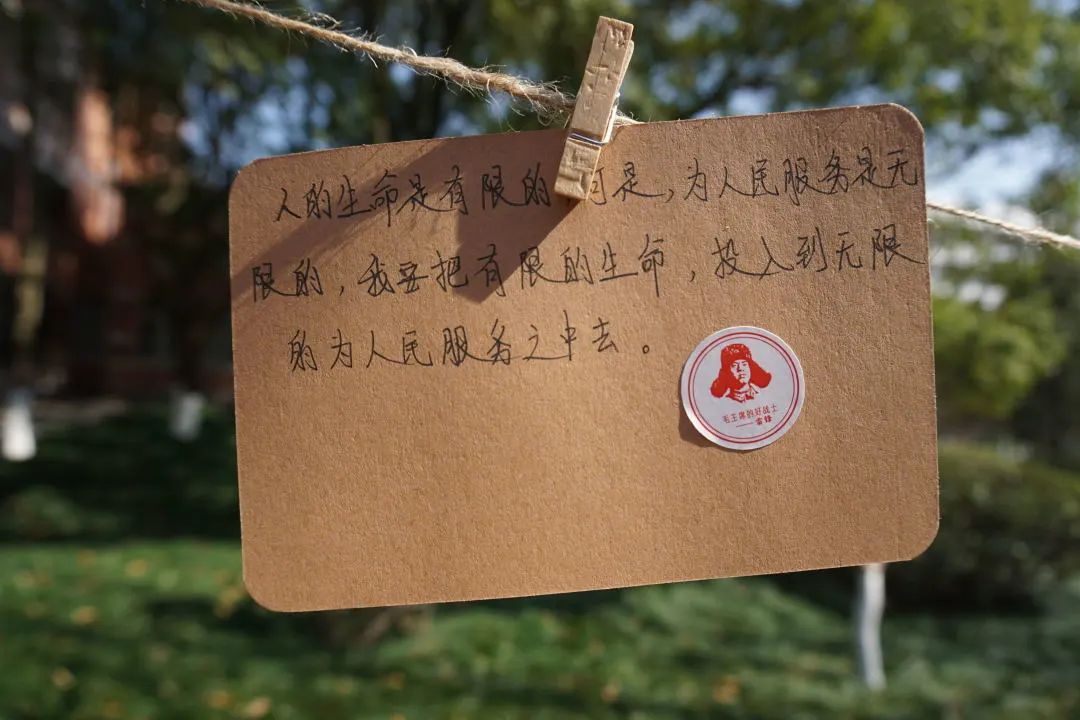 人的生命是有限的 可是,为人民服务是无
限的,我要把有限的生命,投入到无限
的为人民服务之中去。
毛主席的好战士
——雷锋